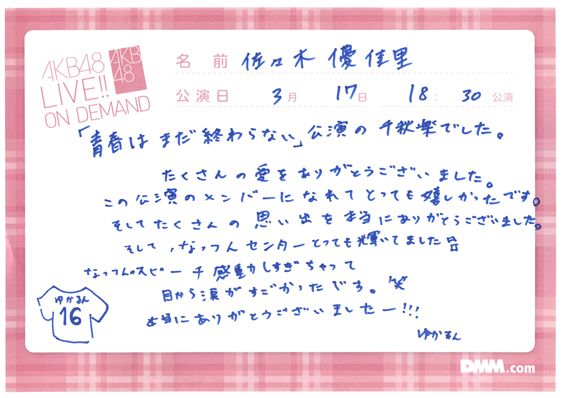 AKB48
LIVE!!
ON DEMAND
AKB
48
名前 佐々木優佳里
公演日 3月 17日 18:30 公演
「青春はまだ終わらない」公演の千秋楽でした。
たくさんの愛をありがとうございました。
この公演のメンバーになれてとっても嬉しかったです。
そしてたくさんの思い出を本当にありがとうございました。
そして、なっつんセンターとっても輝いてました
なっつんのスピーチ感動しすぎちゃって
目から涙がすごかったです。笑
本当にありがとうございましたー!!!
ゆかるん
ゆかるん
16
DMM.com